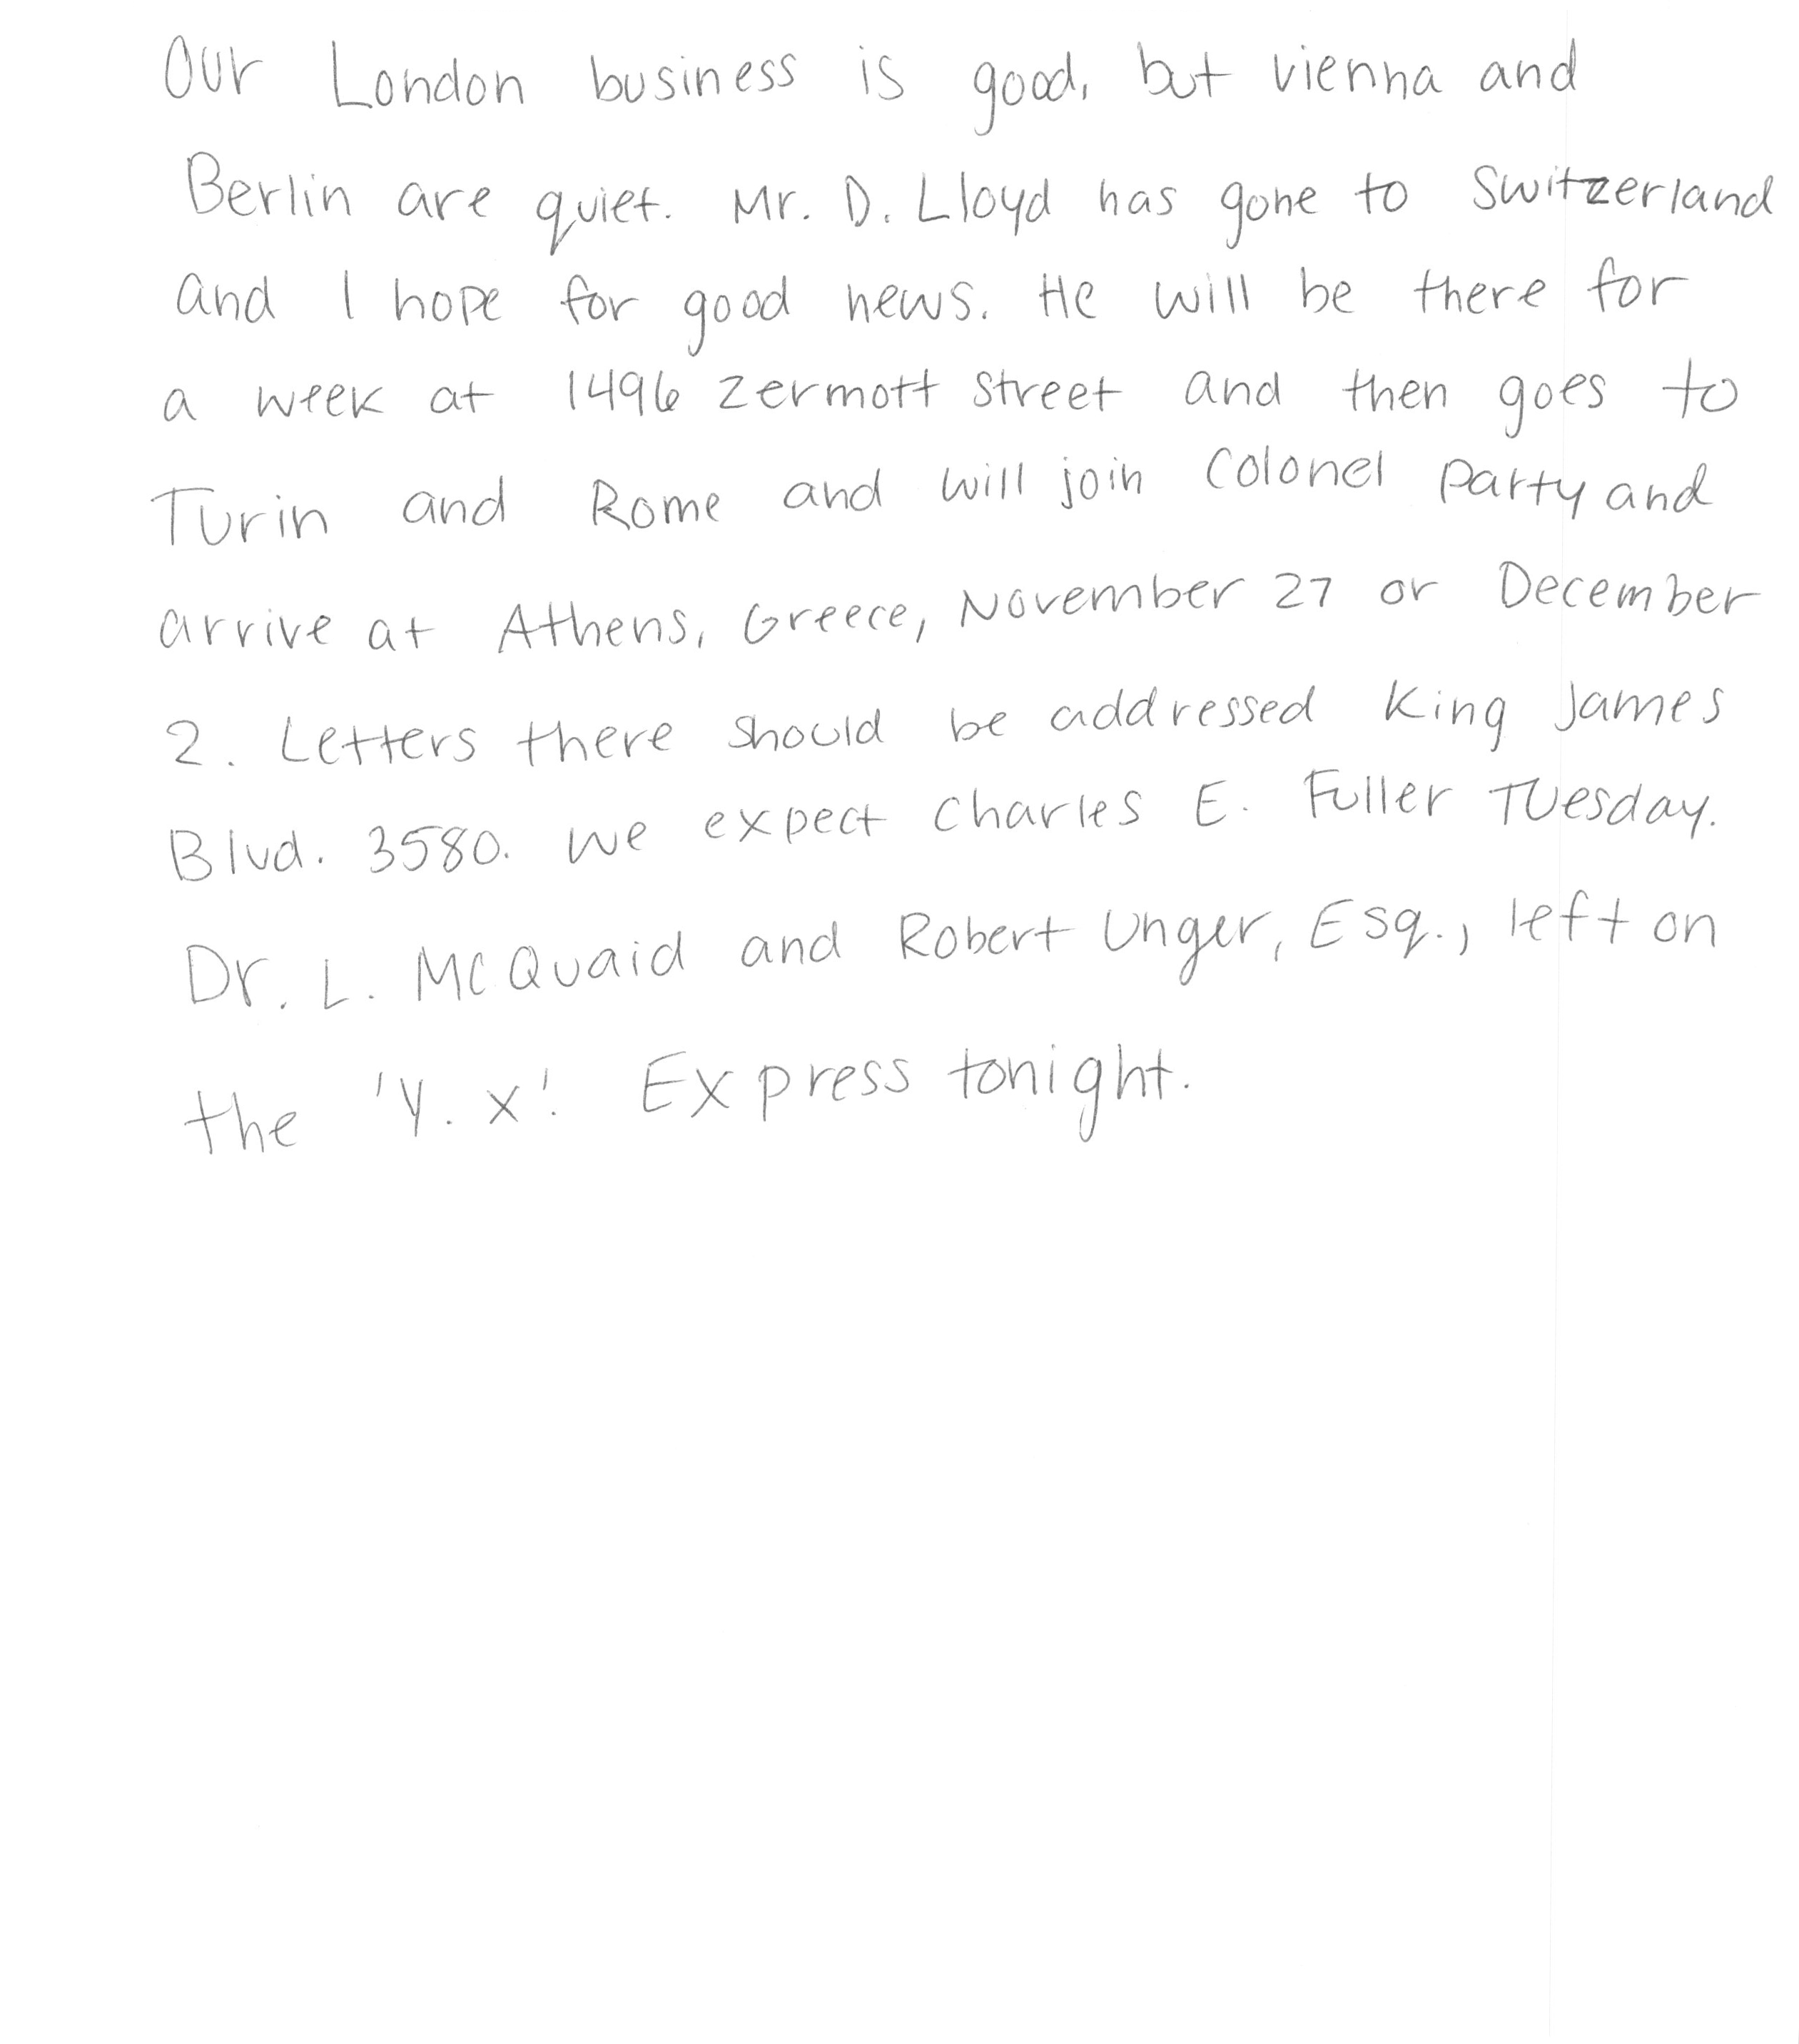 Our London business is good, but vienna and
Berlin are quiet. Mr. D. Lloyd has gone to Switzerland
and I hope for good news. He will be there for
a week at 1496 Zermott street and then goes to
Turin and Rome and will join Colonel Party and
arrive at Athens, Greece, November 27 or December
2. Letters there should be addressed King James
Blvd. 3580. We expect Charles E. Fuller Tuesday.
Dr. L. McQuaid and Robert Unger, Esq., left on
the 'Y. X'. Express tonight.